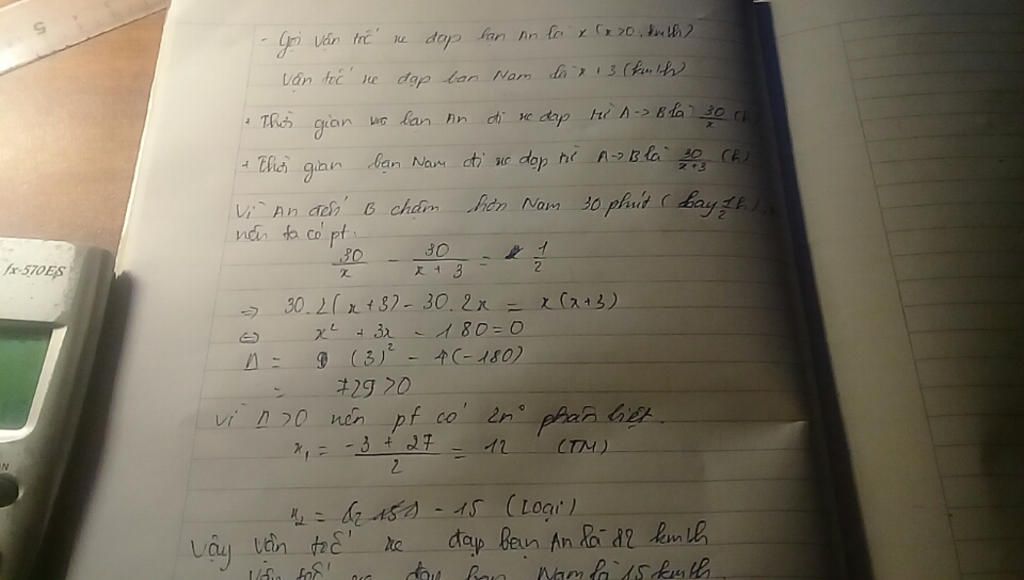 5
- Gọi vận tốc xe đạp bạn An là x (x>0, km/h)
Vận tốc xe đạp bạn Nam là x+3 (km/h)
+ Thời gian bạn An đi xe đạp từ A→B là 30/x (h)
+ Thời gian bạn Nam đi xe đạp từ A→B là 30/x+3 (h)
Vì An đến B chậm hơn Nam 30 phút (hay 1/2 h)
nên ta có pt:
30/x - 30/x+3 = 1/2
fx-570ES
⇒ 30.2(x+3) - 30.2x = x(x+3)
⇔ x² + 3x - 180 = 0
Δ = (3)² - 4(-180)
= 729 > 0
Vì Δ>0 nên pt có 2n° phân biệt.
x₁ = -3 + 27 / 2 = 12 (TM)
x₂ = -15 (Loại)
Vậy vận tốc xe đạp bạn An là 12 km/h
vận tốc xe đạp bạn Nam là 15 km/h